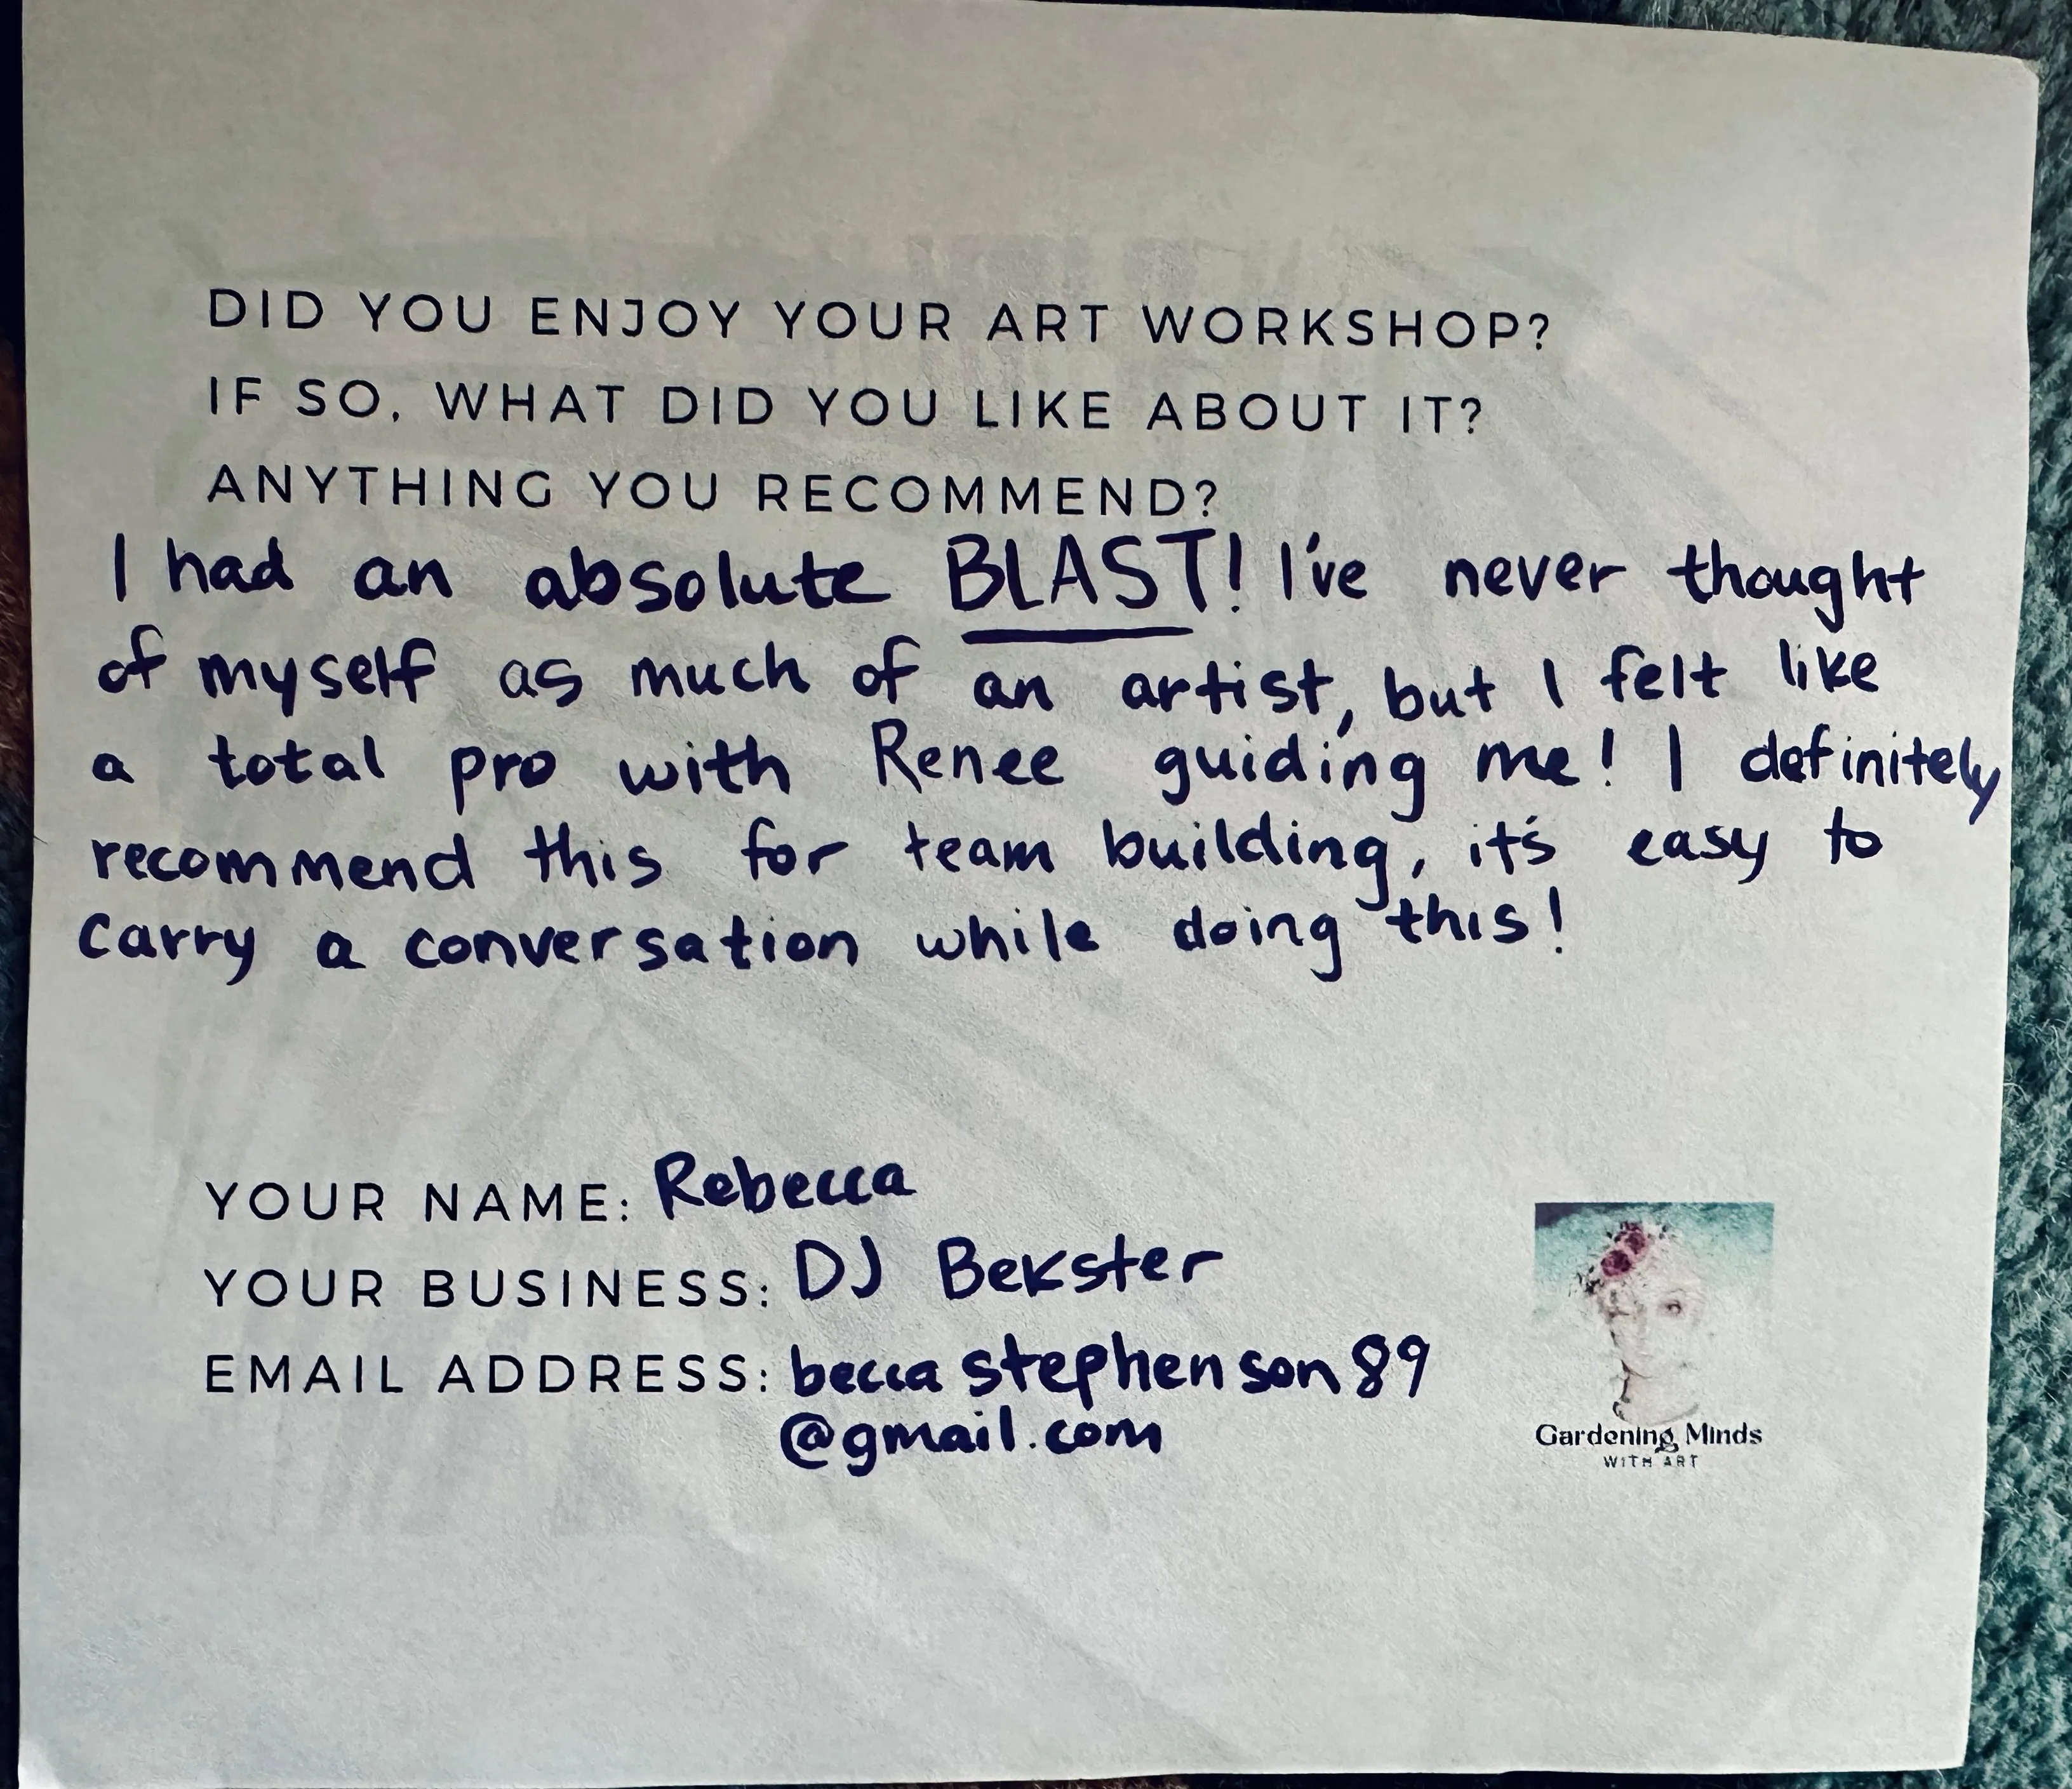 DID YOU ENJOY YOUR ART WORKSHOP?
IF SO, WHAT DID YOU LIKE ABOUT IT?
ANYTHING YOU RECOMMEND?
I had an absolute BLAST! I've never thought
of myself as much of an artist, but I felt like
a total pro with Renee guiding me! I definitely
recommend this for team building, it's easy to
carry a conversation while doing this!
YOUR NAME: Rebecca
YOUR BUSINESS: DJ Bekster
EMAIL ADDRESS: beccastephenson89
@gmail.com
Gardening Minds
WITH ART